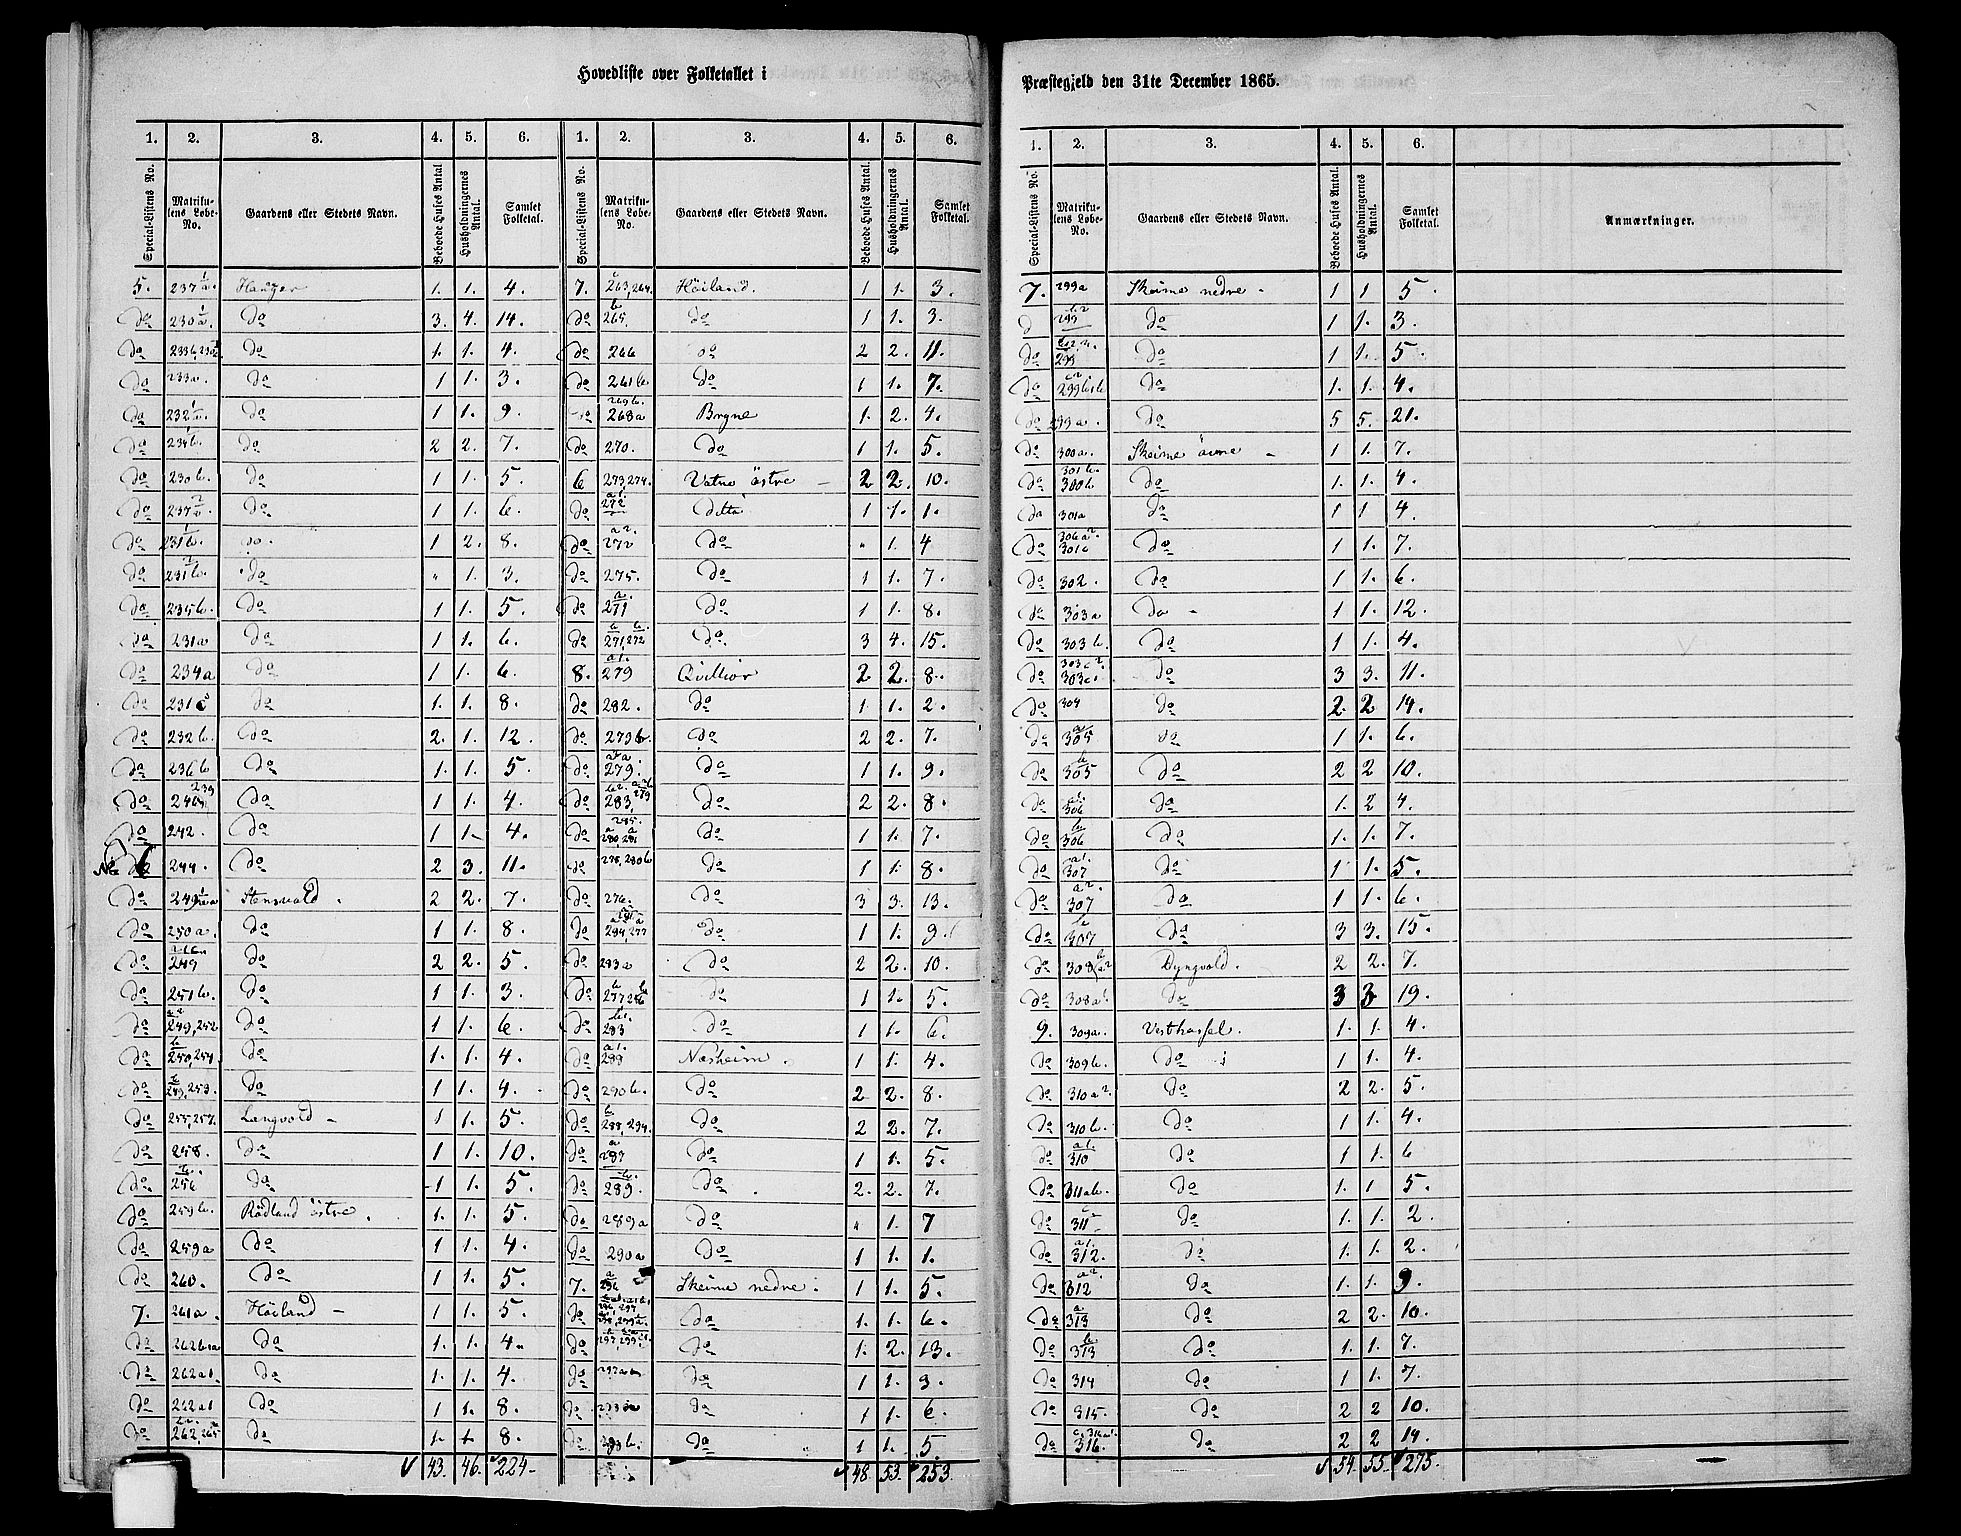 Hovedliste over Folketallet i
Præstegjeld den 31te December 1865.
1. 2. 3. 4. 5. 6. 1. 2. 3. 4. 5. 6.
Special-Listens No. Matrikulens Løbe-No. Gaardens eller Stedets Navn. Beboede Huses Antal Husholdningernes Antal. Samlet Folketal. Special-Listens No. Matrikulens Løbe-No. Gaardens eller Stedets Navn. Beboede Huses Antal. Husholdningernes Antal. Samlet Folketal.
5. Hauger 1. 1. 4.
do do 3. 4. 14.
do do 1. 1. 4.
do 233a. do 1 1. 3.
do do 1 1. 9.
do 234b. do 2 2. 7.
do 230b. do 1 1. 5.
do do 1 1. 6.
do do. 1 2. 8.
do do " 1. 3.
do 235b. do 1 1. 5.
do 231a do 1 1. 6.
do 234a do 1 1. 6.
do 231c do 1. 1. 8.
do 232b. do 2. 1. 12.
do 236b do 1. 1. 5.
do do 1 1. 4.
do 242. do 1 1. 4.
No 6 244. do 2 3. 11.
do Stensvold. 2 2. 7.
do 250a. do 1 1. 8.
do 249 do 2 2. 5.
do 251b. do 1 1. 3.
do 249, 252 do 1 1. 6.
do 250, 254. do 1. 1. 4.
do 249, 253. do 1 1. 4.
do 255, 257. Langvold 1 1. 5.
do 258. do 1 1. 10.
do 256 do 1 1. 5.
do 259b. Rödland östre. 1. 1. 5.
do 259a do 1 1. 4.
do 260. do 1 1. 5.
7. 261a. Höiland 1 1. 5.
do do 1. 1. 4.
do 262a1. do 1. 1. 4.
do 262a1 do 1 1. 8.
do 262, 265 do 1. 1 8.
43. 46. 224
7. 263, 264. Höiland. 1 1. 3.
do 265. do 1 1. 3.
do 266 do 2 2. 11.
do 261b. do 1 1. 7.
do 269b. 268a Bryne 1. 2. 4.
do 270. do 1 1. 5.
6 273, 274. Vatne östre 2 2. 10.
do 272 Ditto 1 1. 1.
do 272 do " 1. 4
do 275. do 1 1. 7.
do 271 do 1 1. 8.
do 271, 272 do. 3 4. 15.
8. 279 Qvilliör 2 2. 8.
do 282. do 1. 1. 2.
do 279b. do 2 2. 7.
do 279. do 1 1. 9.
do 283, 279 do 2 2. 8.
do do 1 1. 7.
do 278, 280b do 1 1. 8.
do 276. do 3 3. 13.
do 284, 277 do 1 1. 9.
do 283a do 2 2. 10.
do do 1 1. 5.
do 283 do 1 1. 6.
do 289 Næsheim. 1 1. 4.
do 290b. do 2 2. 8.
do 288, 294. do 2 2. 7.
do do 1 1. 5.
do 289. do. 2. 2. 7.
do 289a do " 1. 7
do 290a do 1 1. 1.
7. 296 Skeime nedre. 1 1. 5.
do do 1. 1. 6.
do do 1. 2. 13.
do do 1 1. 9.
do do 1 1. 6.
do do 1 1. 5.
48. 53. 253
1. 2. 3. 4. 5. 6.
Special-Listens No. Matrikulens Løbe-No. Gaardens eller Stedets Navn. Beboede Huses Antal. Husholdningernes Antal. Samlet Folketal. Anmærkninger.
7. 299a Skeime nedre. 1 1 5.
d 299 do 1 1. 3.
do 299 do 1 1. 5.
do do 1. 1. 4.
do 299a. do 5 5. 21.
do 300a. Skeime övre 1 1. 7.
do 301b. 300b do 1. 1. 4.
do 301a do 1 1 4.
do do 1 1. 7.
do 302. do 1 1. 6.
do 303a do 1 1. 12.
do 303b. do 1 1. 4.
do 303c2. 303c1 do 3 3. 11.
do 304 do 2. 2 14.
do 305 do 1 1. 6.
do 305 do 2 2 10.
do 306 do 1. 2 4.
do 306 do 1. 1. 7.
do 307 do 1 1. 5.
do 307 do 1 1. 6.
do 307 do 3 3. 15.
do Dyngvold. 2 2. 7.
do 308a1. do 3 3 19.
9. 309a. Vesthassel. 1. 1. 4.
do 309b. do 1 1. 4.
do 310a2. do 2 2. 5.
do 310b. do 1 1. 4.
do 310 do 1 1. 6
do 311ab. do 1. 1 5.
do 311 do 1. 1. 2.
do 312. do 1. 1. 2.
do 312 do 1. 1. 9.
do 313 do 2 2. 10.
do 313 do 1. 1. 7.
do 314 do 1 1. 7.
do 315. do 2 2 10.
do 316. do 2 2 14.
54. 55. 275.